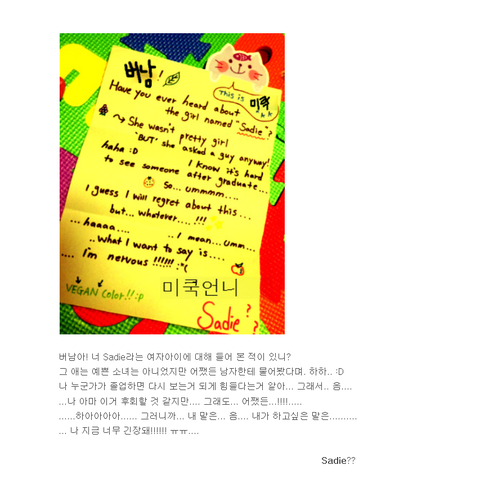 버남!
This is 미쿡 ^^
Have you ever heard about
the girl named "Sadie"?
↪ She wasn't pretty girl
"BUT" she asked a guy anyway!
haha :D I know it's hard
to see someone after graduate...
So... ummmm....
I guess I will regret about this...
but... whatever.... !!!
... haaaa.... .. I mean... umm...
..what I want to say is....
.... I'm nervous !!!!!! :"(
VEGAN color!! :p
미쿡언니
Sadie??
버남아! 너 Sadie라는 여자아이에 대해 들어 본 적이 있니?
그 애는 예쁜 소녀는 아니었지만 어쨌든 남자한테 물어봤다며. 하하.. :D
나 누군가가 졸업하면 다시 보는거 되게 힘들다는거 알아... 그래서.. 음....
...나 아마 이거 후회할 것 같지만.... 그래도... 어쨌든...!!!!.....
......하아아아아...... 그러니까... 내 말은... 음.... 내가 하고싶은 말은..........
... 나 지금 너무 긴장돼!!!!!! ㅠㅠ....
Sadie??